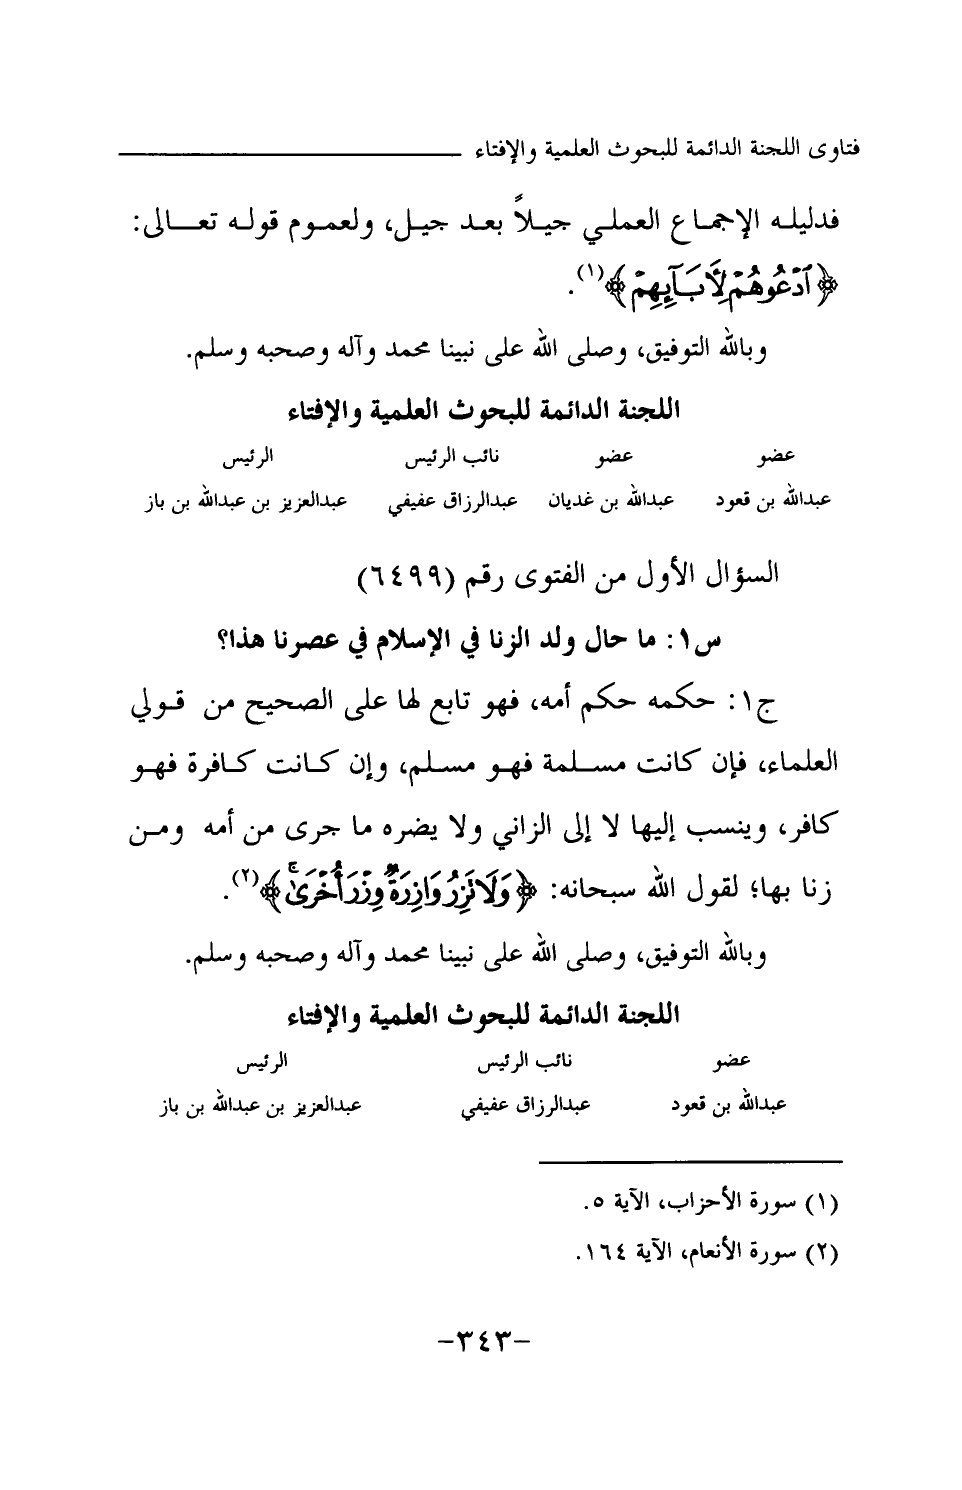 فتاوى اللجنة الدائمة للبحوث العلمية والإفتاء
فدليله الإجماع العملي جيلاً بعد جيل، ولعموم قوله تعالى:
﴿ٱدْعُوهُمْ لِأَبَآئِهِمْ﴾(١).
وبالله التوفيق، وصلى الله على نبينا محمد وآله وصحبه وسلم.
اللجنة الدائمة للبحوث العلمية والإفتاء
عضو عضو نائب الرئيس الرئيس
عبدالله بن قعود عبدالله بن غديان عبدالرزاق عفيفي عبدالعزيز بن عبدالله بن باز
السؤال الأول من الفتوى رقم (٦٤٩٩)
س١: ما حال ولد الزنا في الإسلام في عصرنا هذا؟
ج١: حكمه حكم أمه، فهو تابع لها على الصحيح من قولي
العلماء، فإن كانت مسلمة فهو مسلم، وإن كانت كافرة فهو
كافر، وينسب إليها لا إلى الزاني ولا يضره ما جرى من أمه ومن
زنا بها؛ لقول الله سبحانه: ﴿وَلَا تَزِرُ وَازِرَةٌ وِزْرَ أُخْرَىٰۚ﴾(٢).
وبالله التوفيق، وصلى الله على نبينا محمد وآله وصحبه وسلم.
اللجنة الدائمة للبحوث العلمية والإفتاء
عضو نائب الرئيس الرئيس
عبدالله بن قعود عبدالرزاق عفيفي عبدالعزيز بن عبدالله بن باز
(١) سورة الأحزاب، الآية ٥.
(٢) سورة الأنعام، الآية ١٦٤.
-٣٤٣-